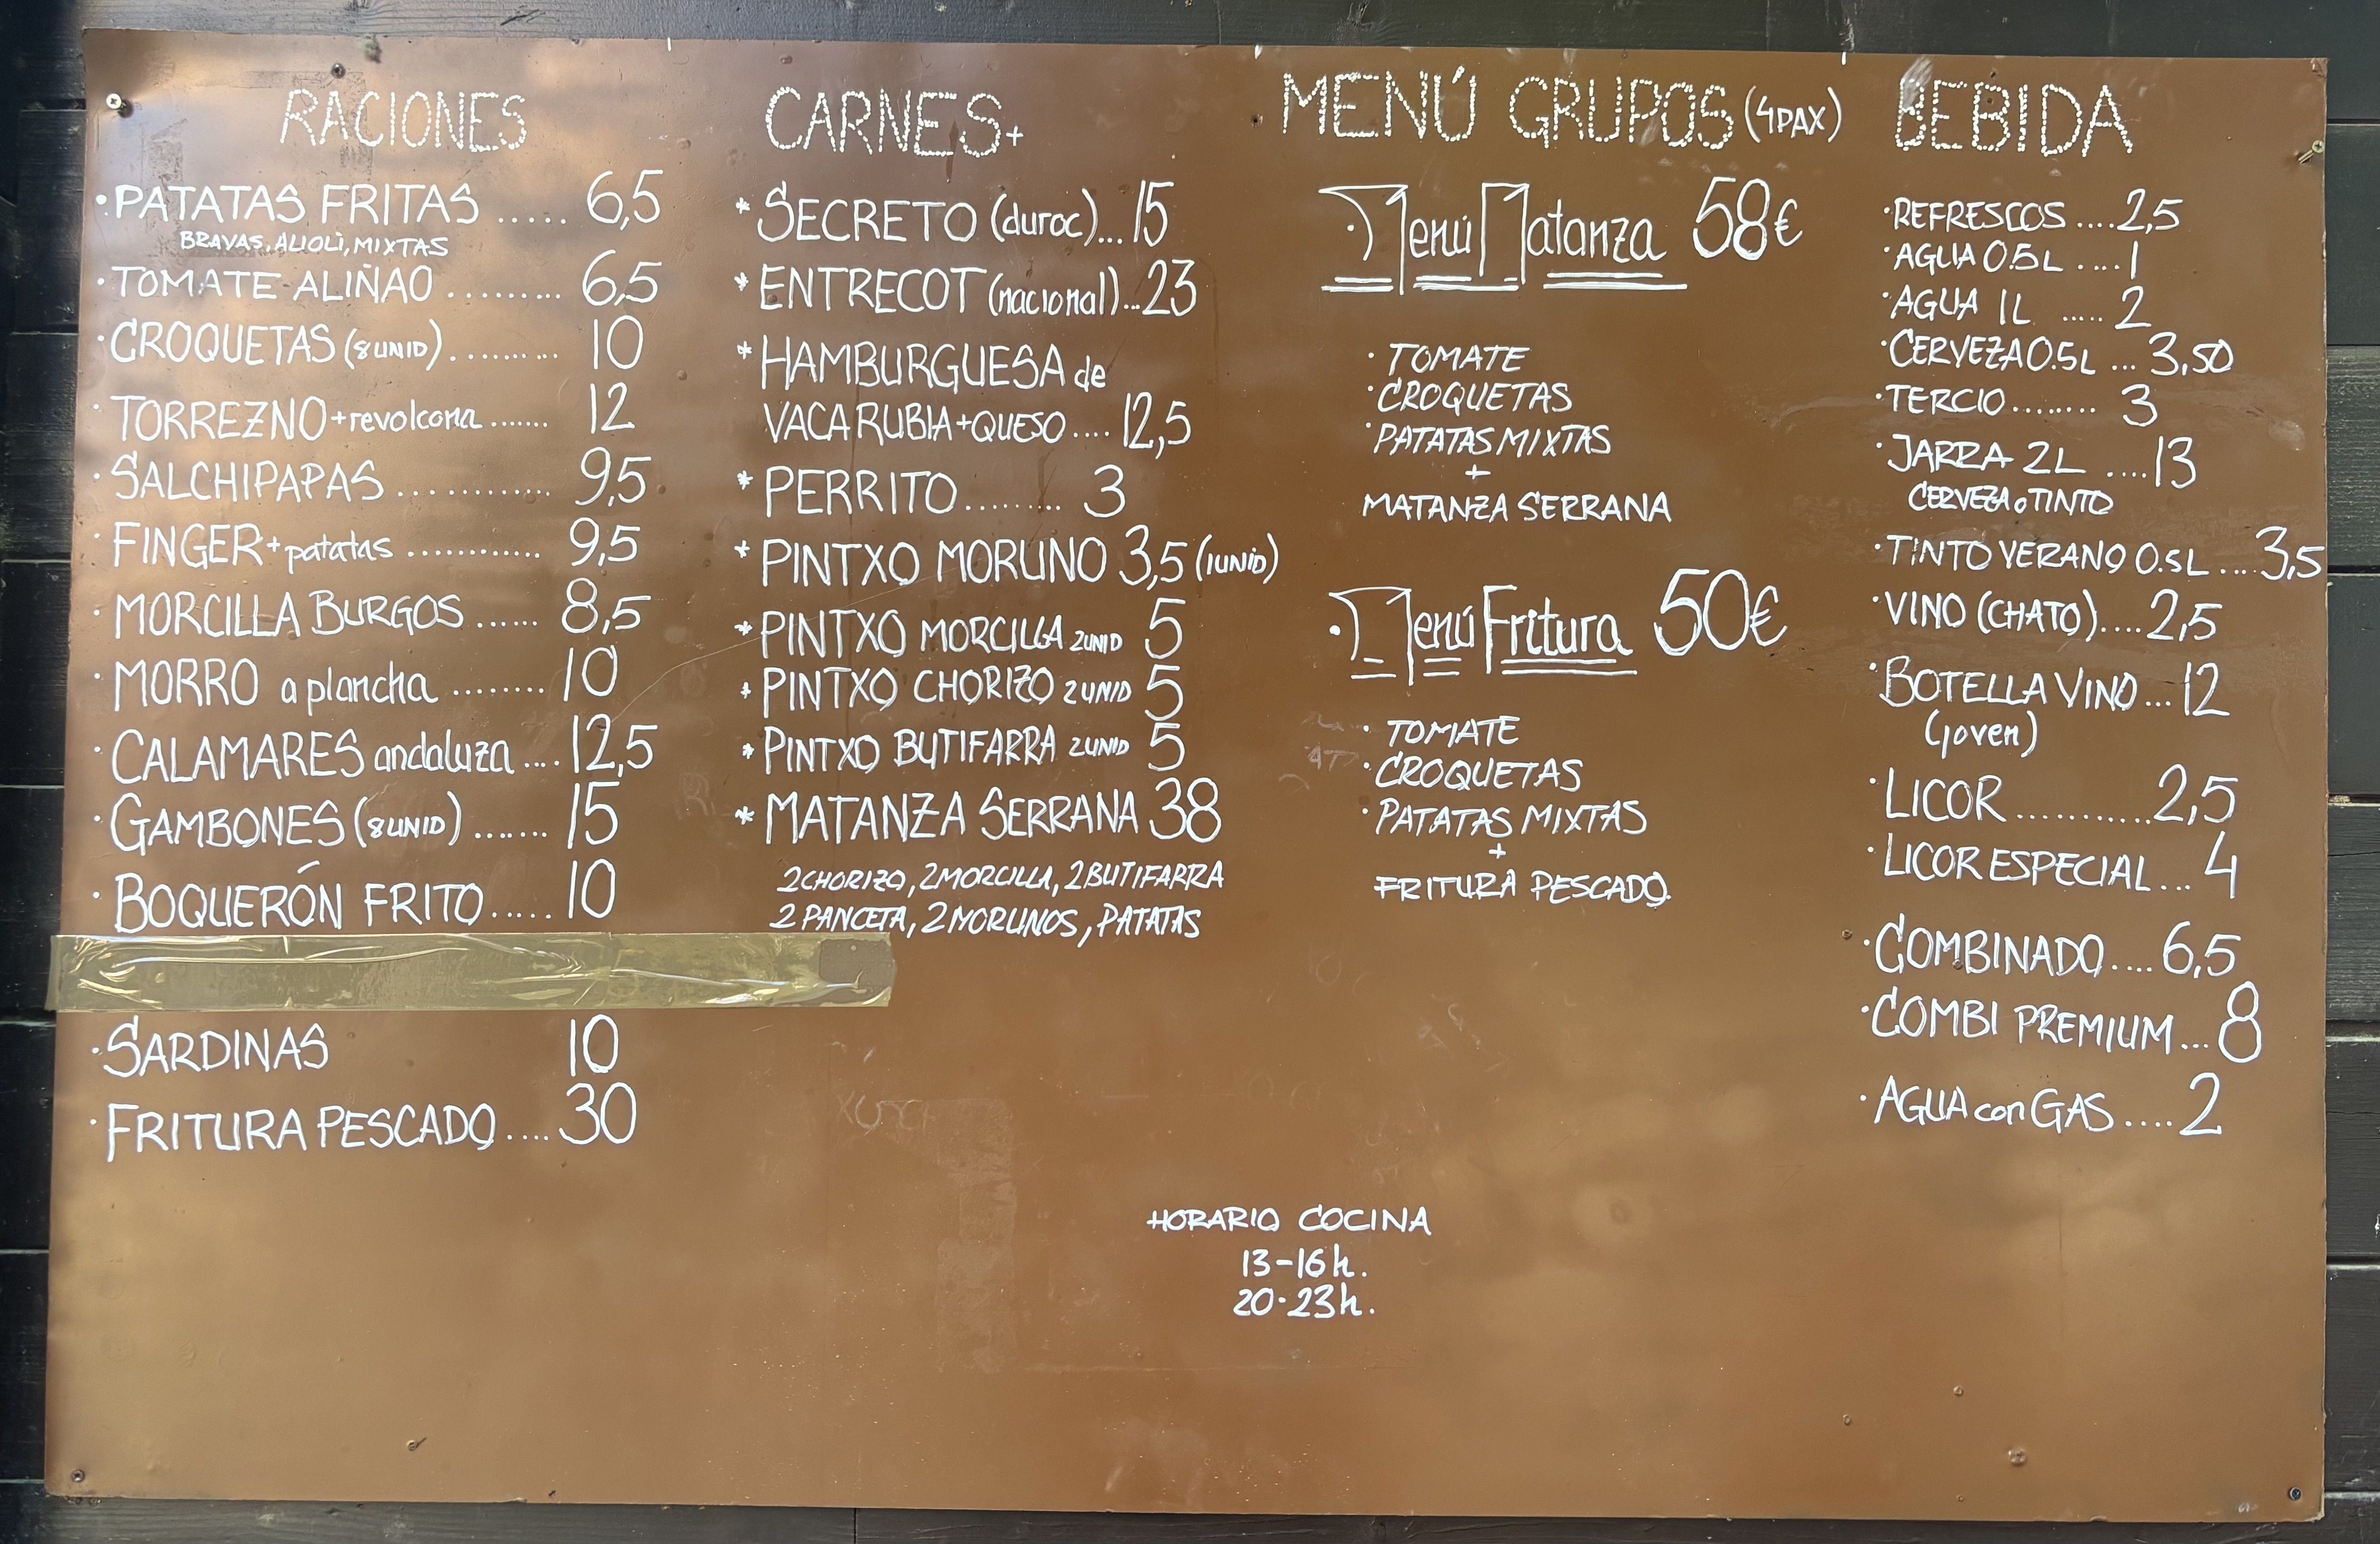 RACIONES
·PATATAS FRITAS ..... 6,5
BRAVAS, ALIOLI, MIXTAS
·TOMATE ALIÑAO ......... 6,5
·CROQUETAS (8 UNID)......... 10
·TORREZNO+revolcona ....... 12
·SALCHIPAPAS ............ 9,5
·FINGER+patatas ............ 9,5
·MORCILLA BURGOS ...... 8,5
·MORRO a plancha ........ 10
·CALAMARES andaluza .... 12,5
·GAMBONES (8 UNID) ....... 15
·BOQUERÓN FRITO ..... 10
·SARDINAS 10
·FRITURA PESCADO .... 30
CARNES+
*SECRETO (duroc)... 15
*ENTRECOT (nacional)...23
*HAMBURGUESA de
VACA RUBIA+QUESO .... 12,5
*PERRITO......... 3
*PINTXO MORUNO 3,5 (1UNID)
*PINTXO MORCILLA 2UNID 5
*PINTXO CHORIZO 2UNID 5
*PINTXO BUTIFARRA 2UNID 5
*MATANZA SERRANA 38
2 CHORIZO, 2 MORCILLA, 2 BUTIFARRA
2 PANCETA, 2 MORUNOS, PATATAS
MENÚ GRUPOS (4PAX)
·Menú Matanza 58€
·TOMATE
·CROQUETAS
·PATATAS MIXTAS
+
MATANZA SERRANA
·Menú Fritura 50€
·TOMATE
·CROQUETAS
·PATATAS MIXTAS
+
FRITURA PESCADO.
BEBIDA
·REFRESCOS ....2,5
·AGUA 0.5L ....1
·AGUA 1L ..... 2
·CERVEZA 0.5L ... 3,50
·TERCIO........ 3
·JARRA 2L ....13
CERVEZA o TINTO
·TINTO VERANO 0.5L ....3,5
·VINO (CHATO)....2,5
·BOTELLA VINO...12
(joven)
·LICOR...........2,5
·LICOR ESPECIAL... 4
·COMBINADO.... 6,5
·COMBI PREMIUM... 8
·AGUA con GAS .... 2
HORARIO COCINA
13-16h.
20-23h.